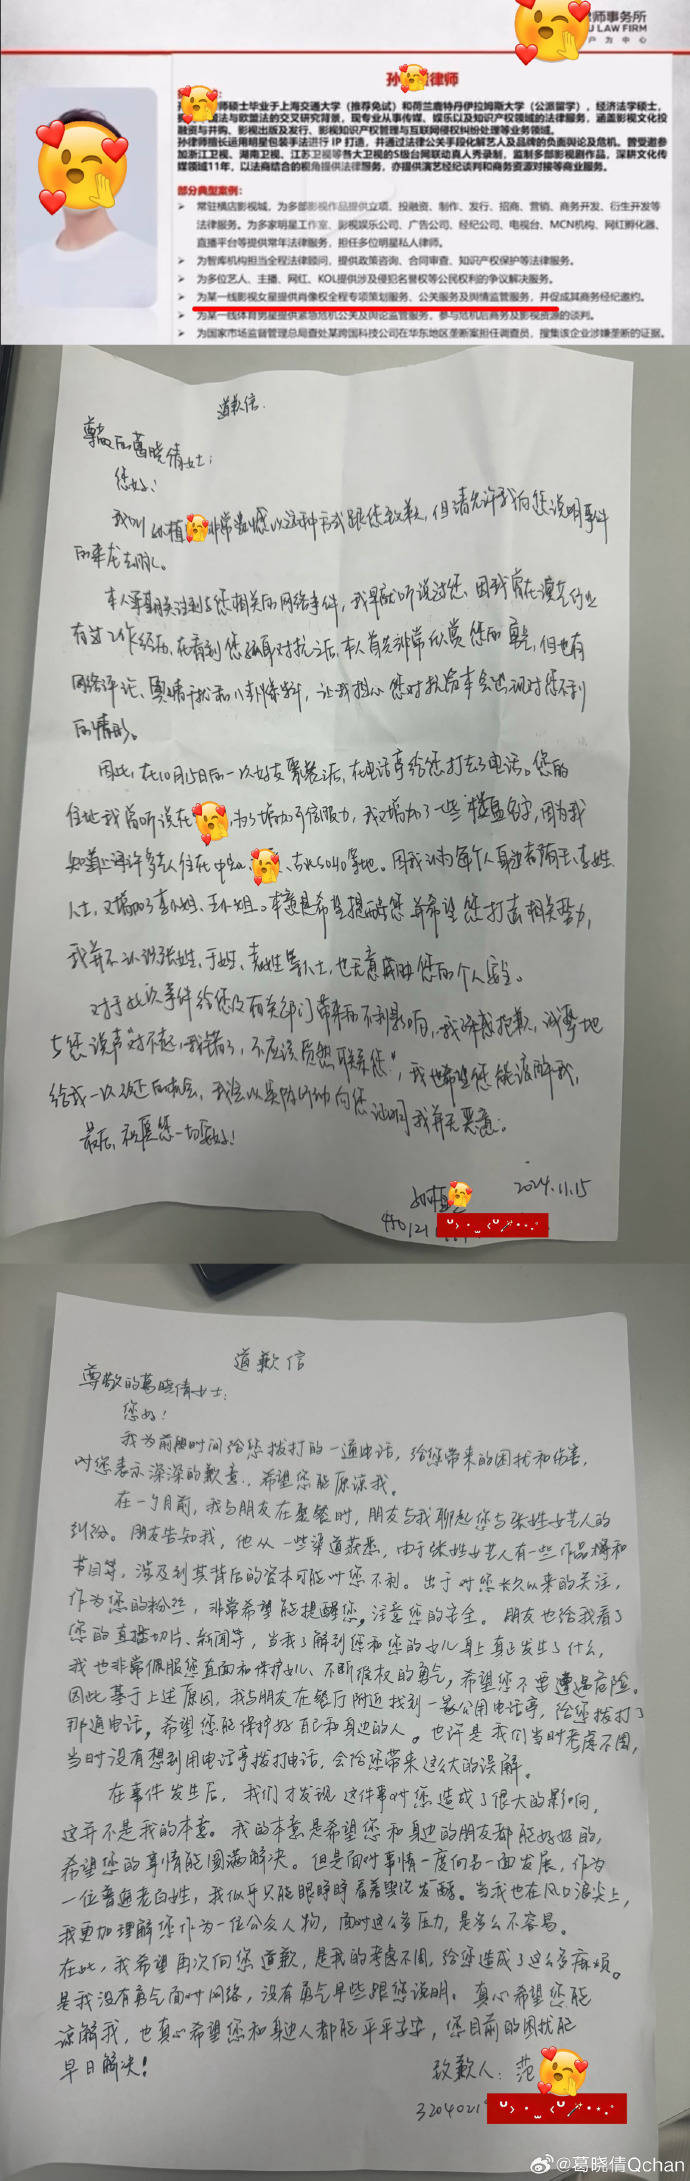 律师事务所
U LAW FIRM
户 为 中 心
孙 律师
孙 师硕士毕业于上海交通大学（推荐免试）和荷兰鹿特丹伊拉姆斯大学（公派留学），经济法学硕士，
法与欧盟法的交叉研究背景，现专业从事传媒、娱乐以及知识产权领域的法律服务，涵盖影视文化投
融资与并购、影视出版及发行、影视知识产权管理与互联网侵权纠纷处理等业务领域。
孙律师擅长运用明星包装手法进行 IP 打造，并通过法律公关手段化解艺人及品牌的负面舆论及危机。曾受邀参
加浙江卫视、湖南卫视、江苏卫视等各大卫视的S级台网联动真人秀录制，监制多部影视剧作品，深耕文化传
媒领域11年，以法商结合的视角提供法律服务，亦提供演艺经纪谈判和商务资源对接等商业服务。
部分典型案例：
常驻横店影视城，为多部影视作品提供立项、投融资、制作、发行、招商、营销、商务开发、衍生开发等
法律服务。为多家明星工作室、影视娱乐公司、广告公司、经纪公司、电视台、MCN机构、网红孵化器、
直播平台等提供常年法律服务，担任多位明星私人律师。
为智库机构担当全程法律顾问，提供政策咨询、合同审查、知识产权保护等法律服务。
为多位艺人、主播、网红、KOL提供涉及侵犯名誉权等公民权利的争议解决服务。
为某一线影视女星提供肖像权全程专项策划服务、公关服务及舆情监管服务，并促成其商务经纪邀约。
为某一线体育男星提供紧急危机公关及舆论监管服务，参与危机后商务及影视资源的谈判。
为国家市场监督管理总局查处某跨国科技公司在华东地区垄断案担任调查员，搜集该企业涉嫌垄断的证据。
道歉信
尊敬的葛晓倩女士：
您好！
我叫孙植 非常 以这种方式跟您致歉，但请允许我向您说明事件
的来龙去脉。
本人 关注到与您相关的网络事件，我早就听说过您，因我曾在演艺行业
有过工作经历，在看到您 对抗之后，本人首先非常欣赏您的勇气，但也有
网络评论、舆情干扰和八卦爆料，让我担心您对抗资本会出现对您不利
的情形。
因此，在10月15日的一次好友聚餐之后，在电话亭给您打去了电话。您的
住址我曾听说在 ，为了增加可信服力，我又增加了一些“楼盘名字，因为我
知道 许多名人住在中 、 、古北SOHO等地。因我认为每个人身边都有王、李姓
人士，又增加了李小姐、王小姐。本意是希望提醒您 并希望您打击相关势力，
我并不认识张姓、于姓、 姓等人士，也无意威胁您的个人安全。
对于此次事件给您及有关部门带来的不利影响，我深感抱歉，诚挚地
与您说声“对不起，我错了，不应该贸然联系您”，我也希望您能谅解我，
给我一次改过的机会，我会以实际行动向您证明我并无恶意。
最后，祝愿您一切安好！
孙植
2024.11.15
450121
道歉信
尊敬的葛晓倩女士：
您好！
我为前段时间给您拨打的一通电话，给您带来的困扰和伤害，
对您表示深深的歉意，希望您能原谅我。
在一个月前，我与朋友在聚餐时，朋友与我聊起您与张姓女艺人的
纠纷。朋友告知我，他从一些渠道获悉，由于张姓女艺人有一些作品 和
节目等，涉及到其背后的资本可能对您不利。出于对您长久以来的关注，
作为您的粉丝，非常希望能提醒您，注意您的安全。朋友也给我看了
您的直播切片、新闻等，当我了解到您和您的女儿身上真正发生了什么，
我也非常佩服您直面和保护女儿、不断维权的勇气，希望您不要遭遇危险。
因此基于上述原因，我与朋友在餐厅附近找到一家公用电话亭，给您拨打了
那通电话，希望您能保护好自己和身边的人。也许是我们当时考虑不周，
当时没有想到用电话亭拨打电话，会给您带来这么大的误解。
在事件发生后，我们才发现这件事对您造成了很大的影响，
这并不是我的本意。我的本意是希望您和身边的朋友都能好好的，
希望您的事情能圆满解决。但是面对事情一度向另一面发展，作为
一位普通老百姓，我似乎只能眼睁睁看着舆论发酵。当我也在风口浪尖上，
我更加理解您作为一位公众人物，面对这么多压力，是多么不容易。
在此，我希望再次向您道歉，是我的考虑不周，给您造成了这么多麻烦。
是我没有勇气面对网络，没有勇气早些跟您说明。真心希望您能
谅解我，也真心希望您和身边人都能平平安安，您目前的困扰能
早日解决！
致歉人：范
3204021
@葛晓倩Qchan